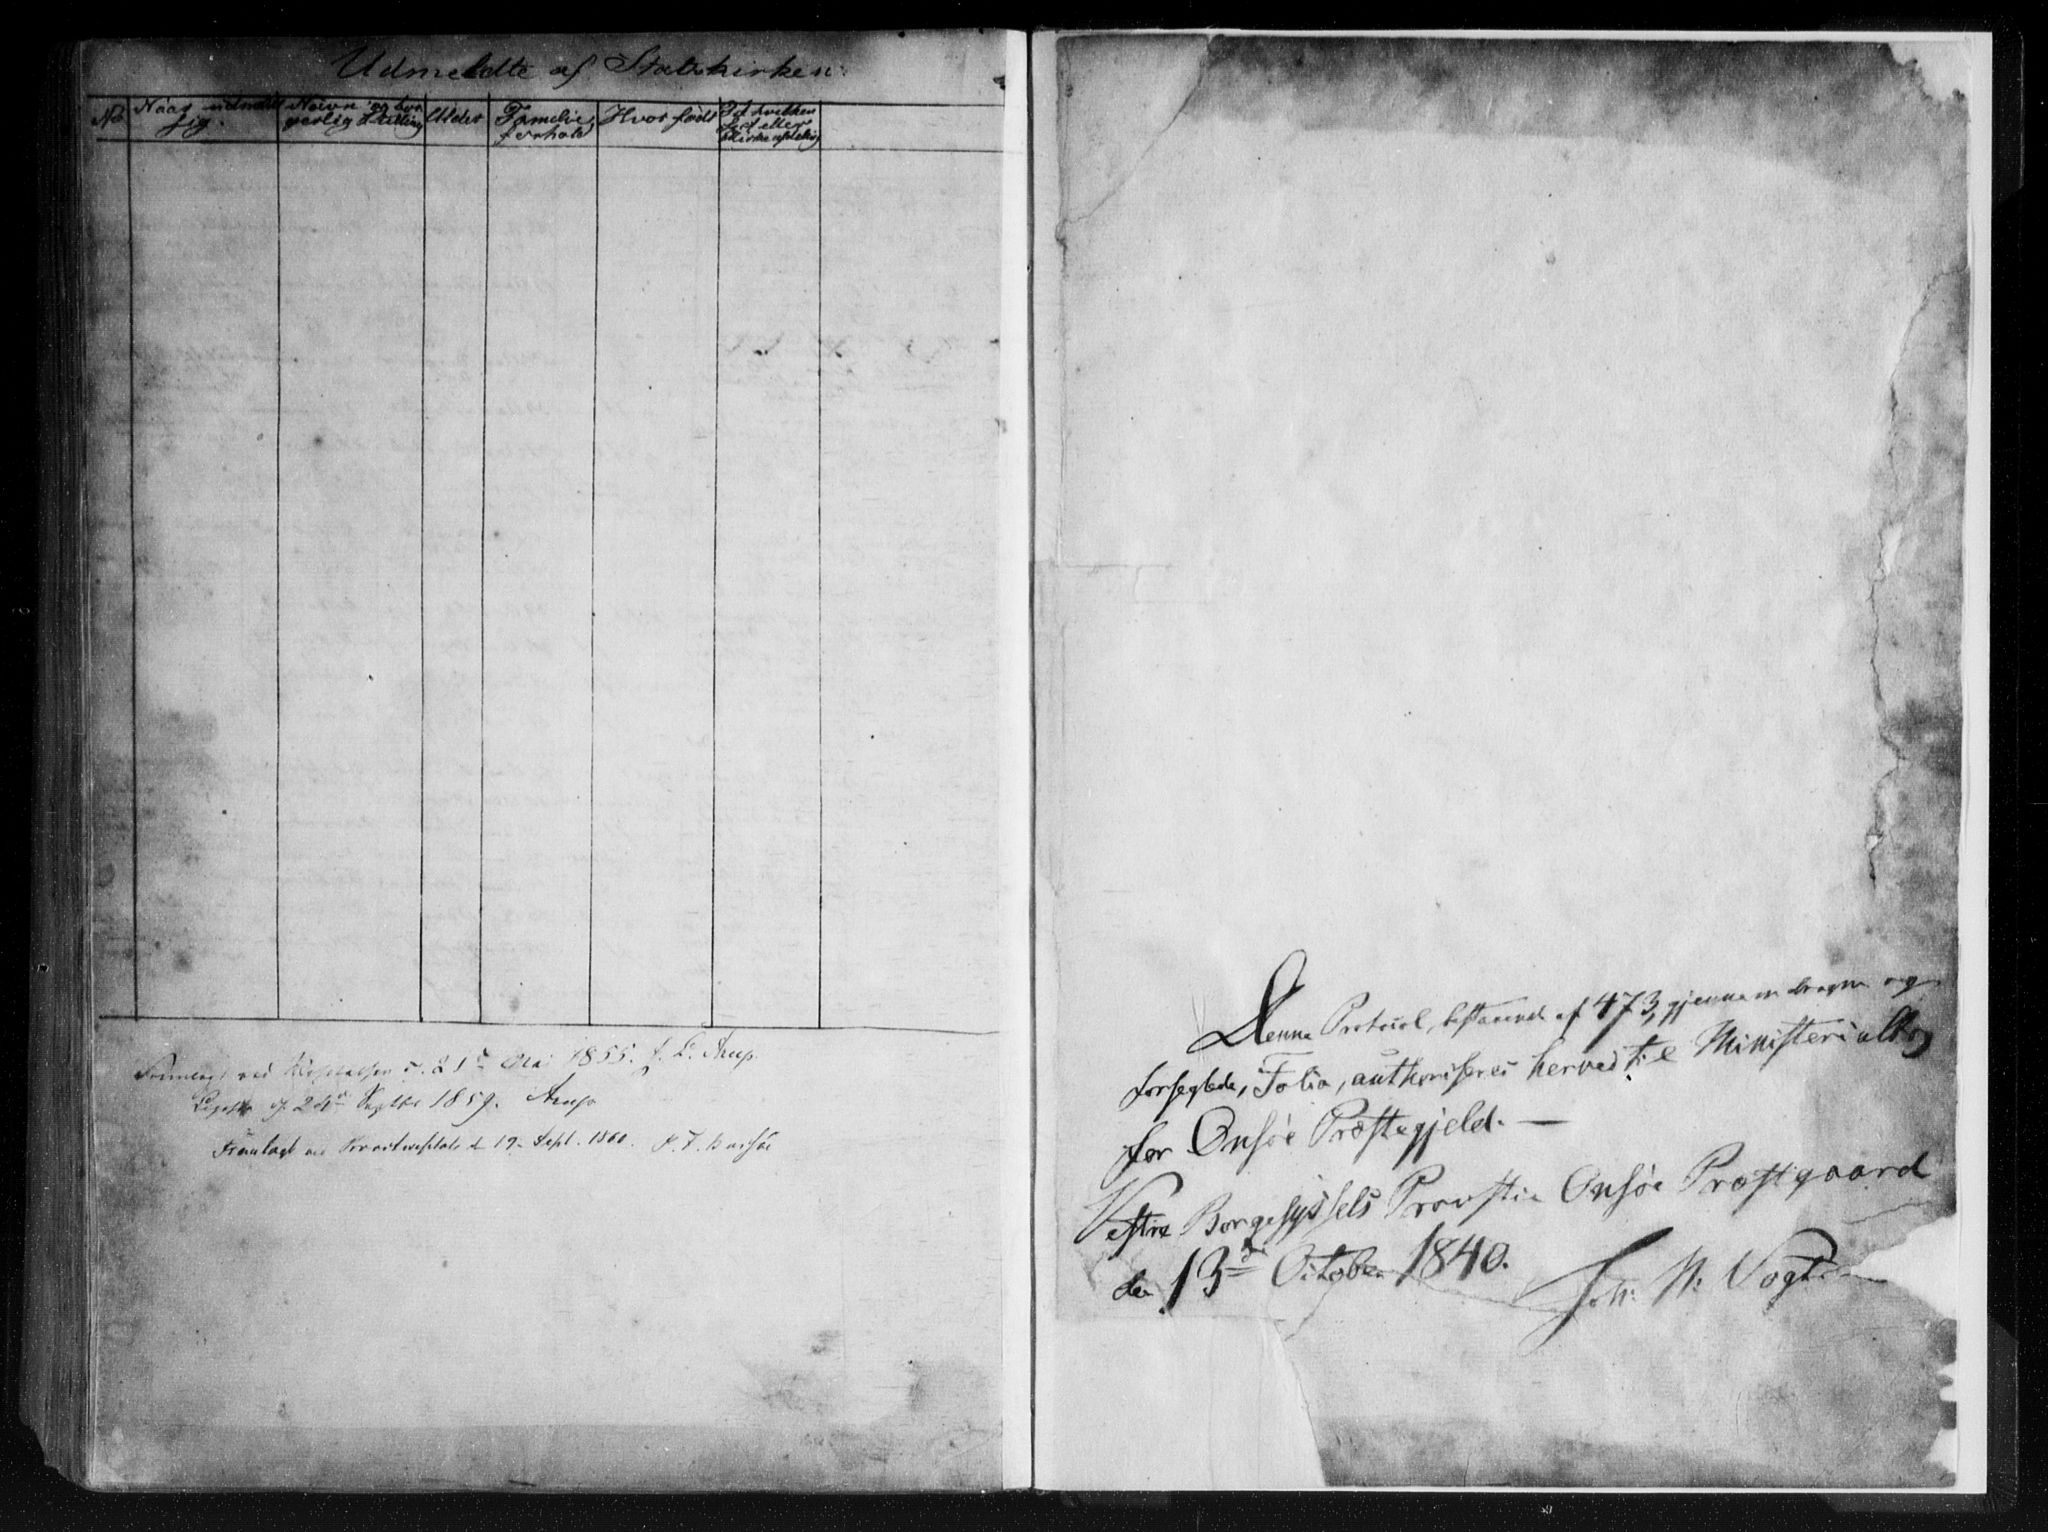 Udmeldte af Statskirken
No
Naar udmeldt
sig.
Navn og bor-
gerlig Stilling
Alder
Familie-
forhold
Hvor født
Til hvilken
Sect eller
Kirkeafdeling
Fremlagt ved Visitatsen d. 21d Mai 1855. Arup.
Ligesaa d. 24d Septbr 1859. Arup
Fremlagt ved Provstevisitats d 19 Sept. 1860.
Denne Protocol, bestaaende af 473, gjennemdragne og
forseglede, Folia, authoriseres herved til Ministerialbog
for Onsøe Præstegjeld. —
Vestre Borgesyssels Provstie Onsøe Præstgaard
den 13de October 1840.
Joh: N. Vogt